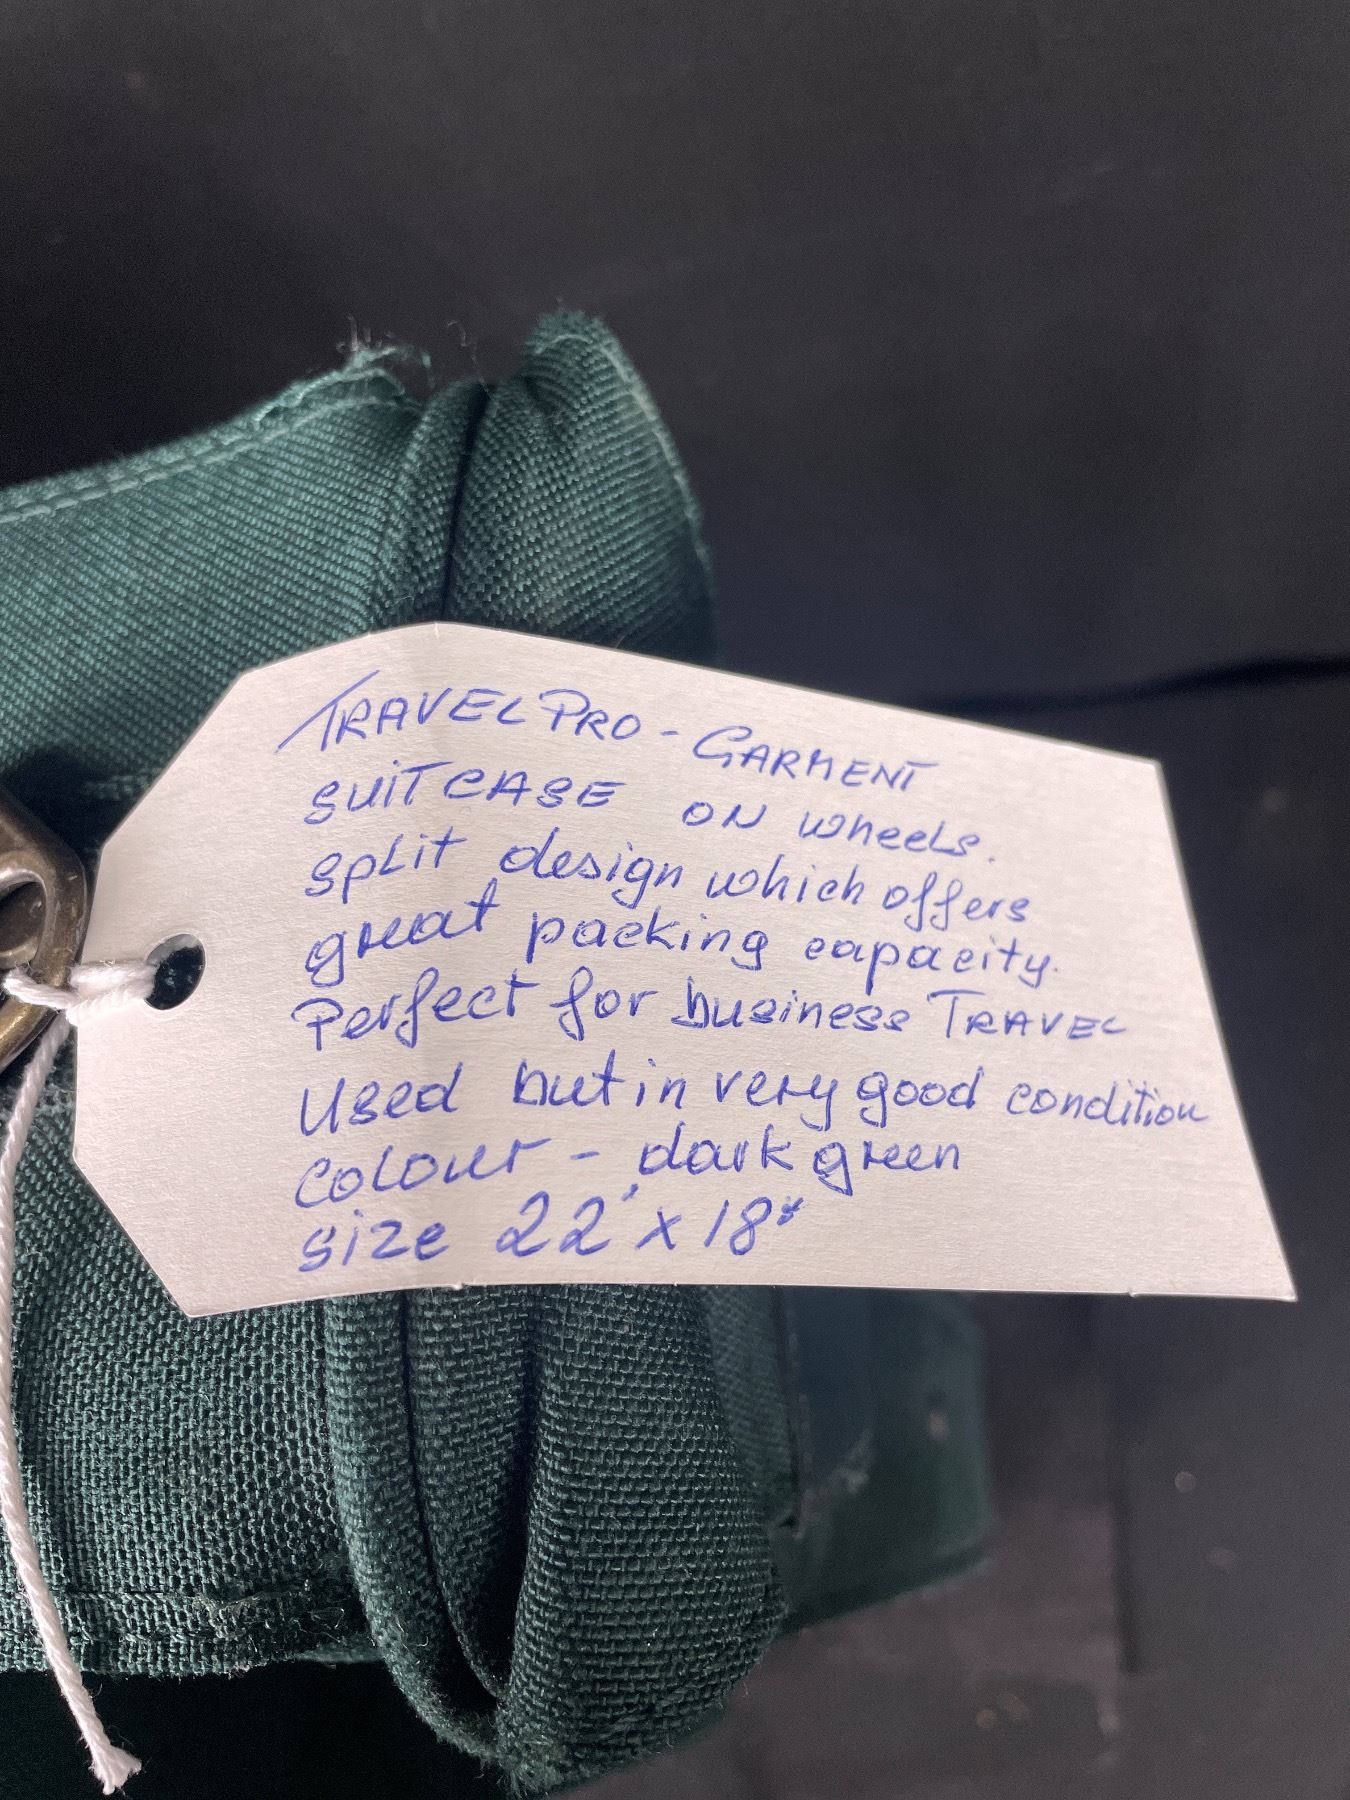 TRAVELPRO - GARMENT
SUITCASE ON wheels.
split design which offers
great packing capacity.
Perfect for business TRAVEL
Used but in very good condition
colour - dark green
size 22" x 18"